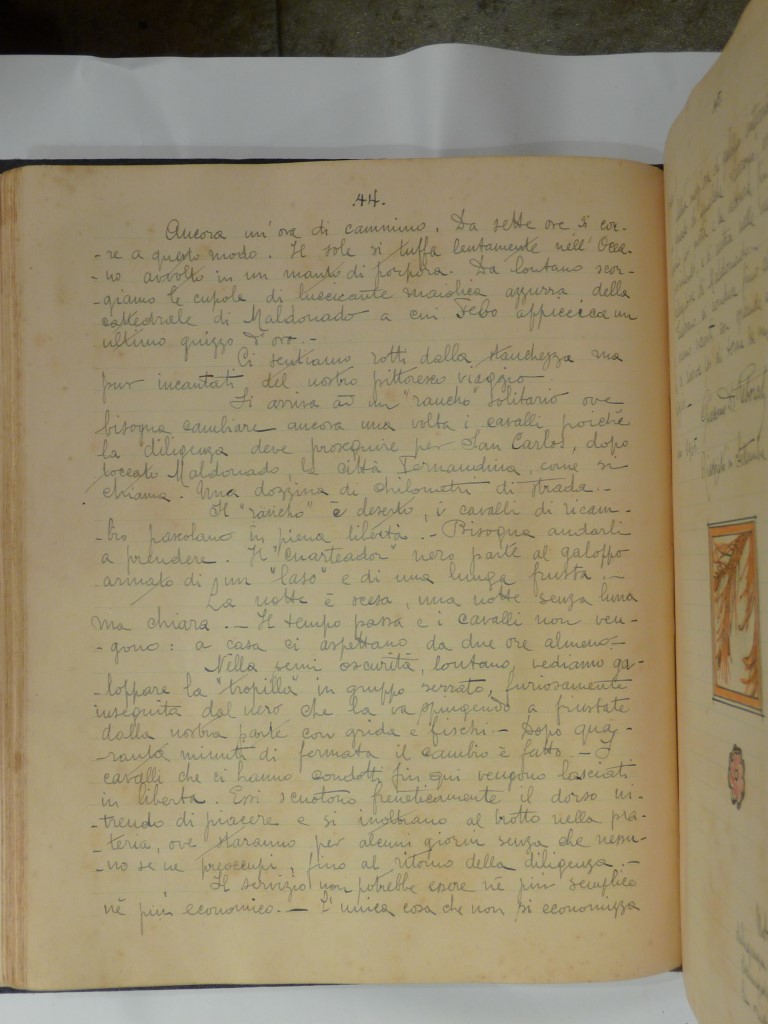 .44.
Ancora un'ora di cammino. Da sette ore si cor-
-re a questo modo. Il sole si tuffa lentamente nell'Ocea-
-no avvolto in un manto di porpora. Da lontano scor-
-giamo le cupole, di luccicante maiolica azzurra, della
cattedrale di Maldonado a cui Febo appiccica un
ultimo guizzo d'oro.-
Ci sentiamo rotti dalla stanchezza ma
pur incantati del nostro pittoresco viaggio.
Si arriva ad un "rancho" solitario ove
bisogna cambiare ancora una volta i cavalli poichè
la diligenza deve proseguire per San Carlos, dopo
toccato Maldonado, la città Fernandina, come si
chiama. Una dozzina di chilometri di strada.-
Il "rancho" è deserto, i cavalli di ricam-
-bio pascolano in piena libertà.- Bisogna andarli
a prendere. Il "cuarteador" nero parte al galoppo
armato di un "laso" e di una lunga frusta.-
La notte è scesa, una notte senza luna
ma chiara.- Il tempo passa e i cavalli non ven-
-gono: a casa ci aspettano da due ore almeno.-
Nella semi oscurità, lontano, vediamo ga-
-loppare la "tropilla" in gruppo serrato, furiosamente
inseguita dal nero che la va spingendo a frustate
dalla nostra parte con grida e fischi.- Dopo qua-
-ranta minuti di fermata il cambio è fatto.- I
cavalli che ci hanno condotti fin qui vengono lasciati
in libertà. Essi scuotono freneticamente il dorso ni-
-trendo di piacere e si inoltrano al trotto nella pra-
-teria, ove staranno per alcuni giorni senza che nessu-
-no se ne preoccupi, fino al ritorno della diligenza.-
Il servizio non potrebbe essere nè più semplice
nè più economico.- L'unica cosa che non si economizza